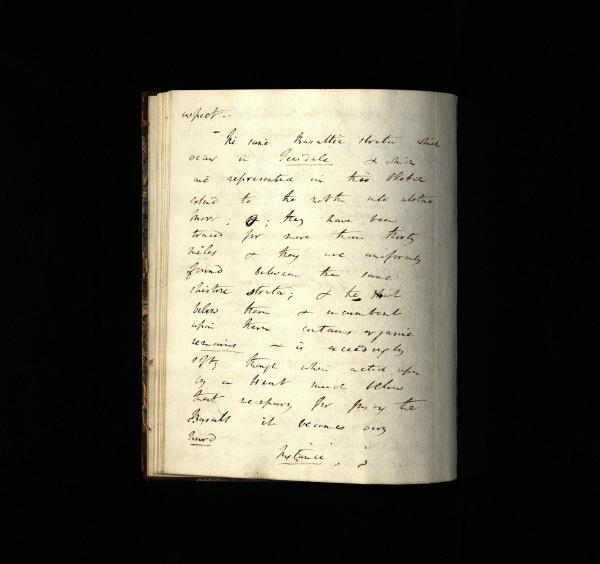 aspect. -
- The same Basaltic strata which
occur in Teesdale & which
are represented in this Sketch
extend to the north into alstone
Moor; & they have been
traced for more than thirty
miles & they are uniformly
found between the same
shistose strata; & the that
below them & incumbent
upon them contains organic
remains & is exceedingly
soft, though when acted upon
by a heat much below
that necessary for fusing the
Basalt it becomes very
hard
Instance